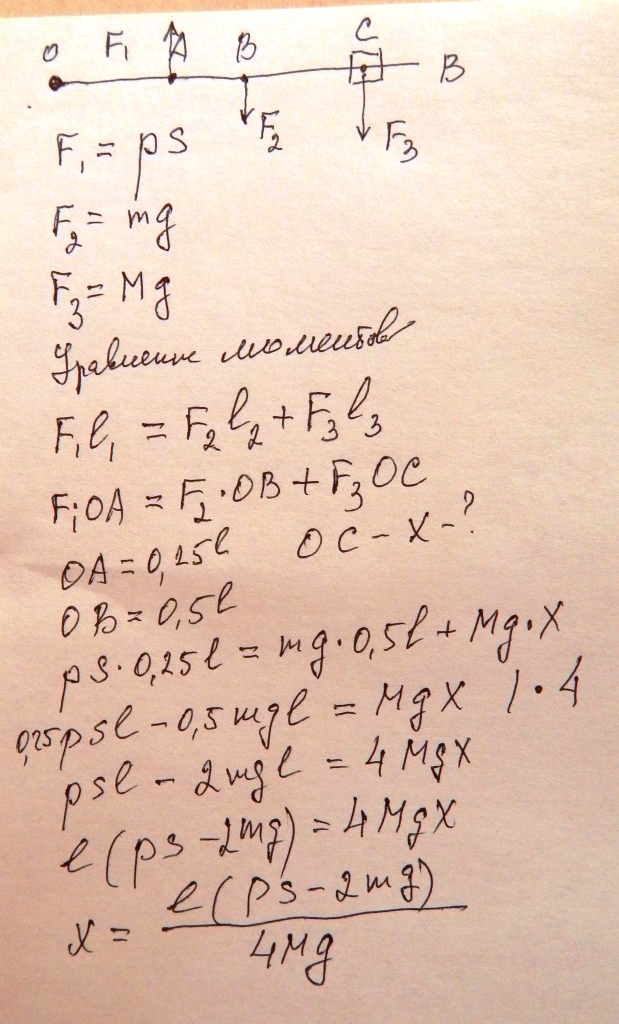 O F₁ A B C B
F₂ F₃
F₁ = pS
F₂ = mg
F₃ = Mg
Уравнение моментов
F₁l₁ = F₂l₂ + F₃l₃
F₁OA = F₂·OB + F₃OC
OA = 0,25l OC - X - ?
OB = 0,5l
pS·0,25l = mg·0,5l + Mg·X
0,25psl - 0,5mgl = MgX | · 4
psl - 2mgl = 4MgX
l(ps - 2mg) = 4MgX
X = l(ps - 2mg)
4Mg